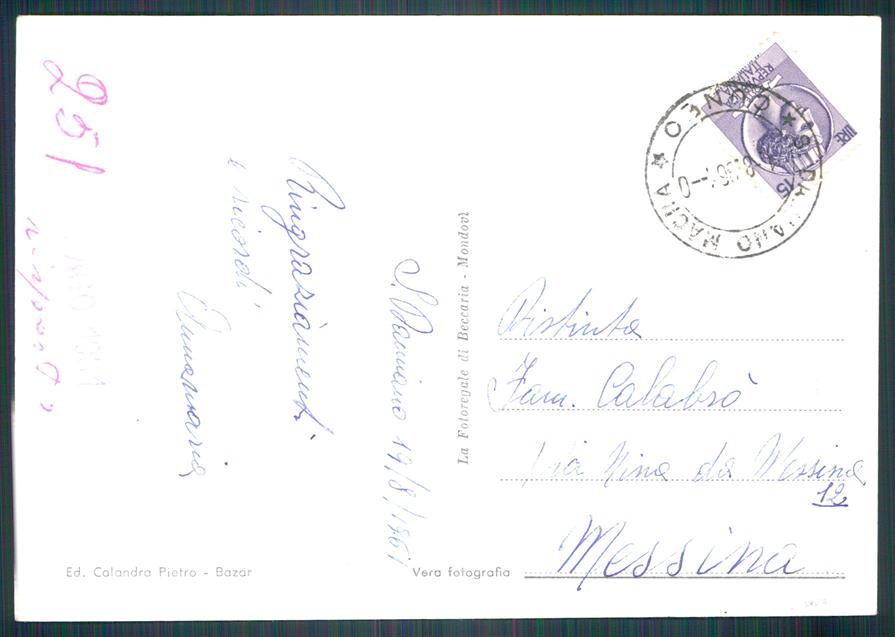 S. Damiano 19/8/1961
Ringraziamenti
e ricordi
Annamaria
Distinta
Fam. Calabrò
Via Nina da Messina
12
Messina
La Fotoregale di Beccaria - Mondovì
Ed. Calandra Pietro - Bazar
Vera fotografia
REPVBBLICA
ITALIANA
LIRE 15
DAMIANO MACRA
* CUNEO *
251